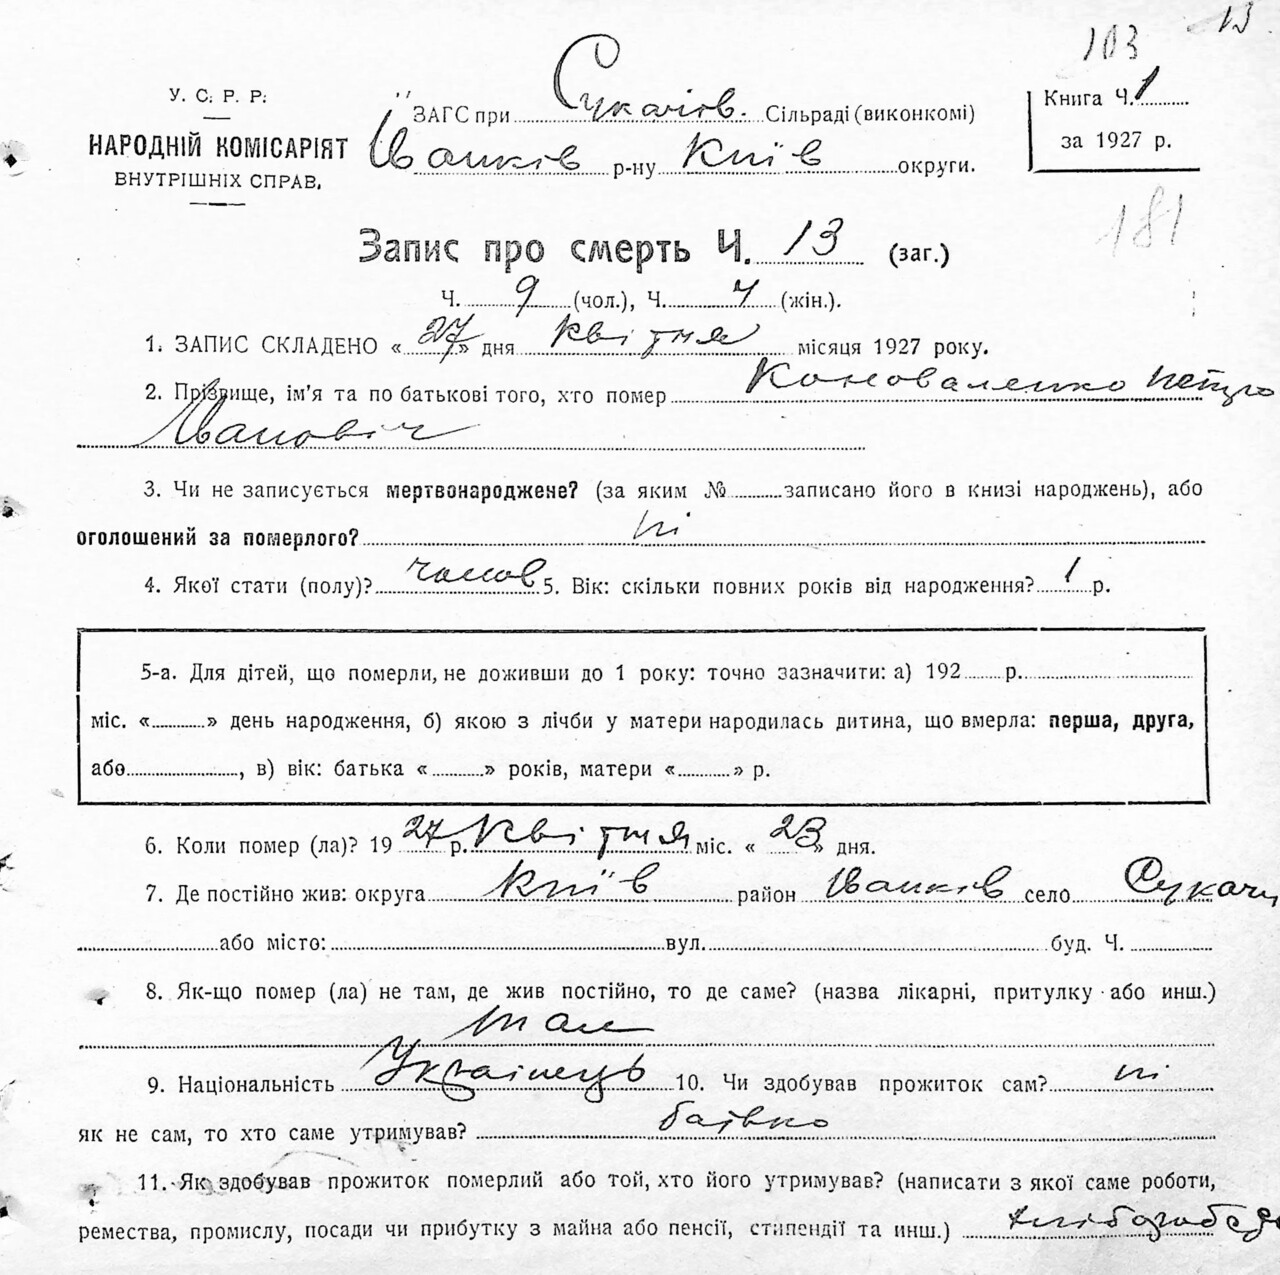 13
103
У. С. Р. Р.
НАРОДНІЙ КОМІСАРІЯТ
ВНУТРІШНІХ СПРАВ.
ЗАГС при Сукачів. Сільраді (виконкомі)
Іванків р-ну Київ округи.
Книга Ч. 1
за 1927 р.
181
Запис про смерть Ч. 13 (заг.)
Ч. 9 (чол.), Ч. 4 (жін.).
1. ЗАПИС СКЛАДЕНО « 27 » дня квітня місяця 1927 року.
2. Прізвище, ім'я та по батькові того, хто помер Коноваленко Петро
Іванович
3. Чи не записується мертвонароджене? (за яким № записано його в книзі народжень), або
оголошений за померлого? ні
4. Якої стати (полу)? чолов 5. Вік: скільки повних років від народження? 1 р.
5-а. Для дітей, що померли, не доживши до 1 року: точно зазначити: а) 192 р.
міс. « » день народження, б) якою з лічби у матери народилась дитина, що вмерла: перша, друга,
або , в) вік: батька « » років, матери « » р.
6. Коли помер (ла)? 19 27 р. квітня міс. « 23 » дня.
7. Де постійно жив: округа Київ район Іванків село Сукачі
або місто: вул. буд. Ч.
8. Як-що помер (ла) не там, де жив постійно, то де саме? (назва лікарні, притулку або инш.)
там
9. Національність Українець 10. Чи здобував прожиток сам? ні
як не сам, то хто саме утримував? батько
11. Як здобував прожиток померлий або той, хто його утримував? (написати з якої саме роботи,
ремества, промислу, посади чи прибутку з майна або пенсії, стипендії та инш.)